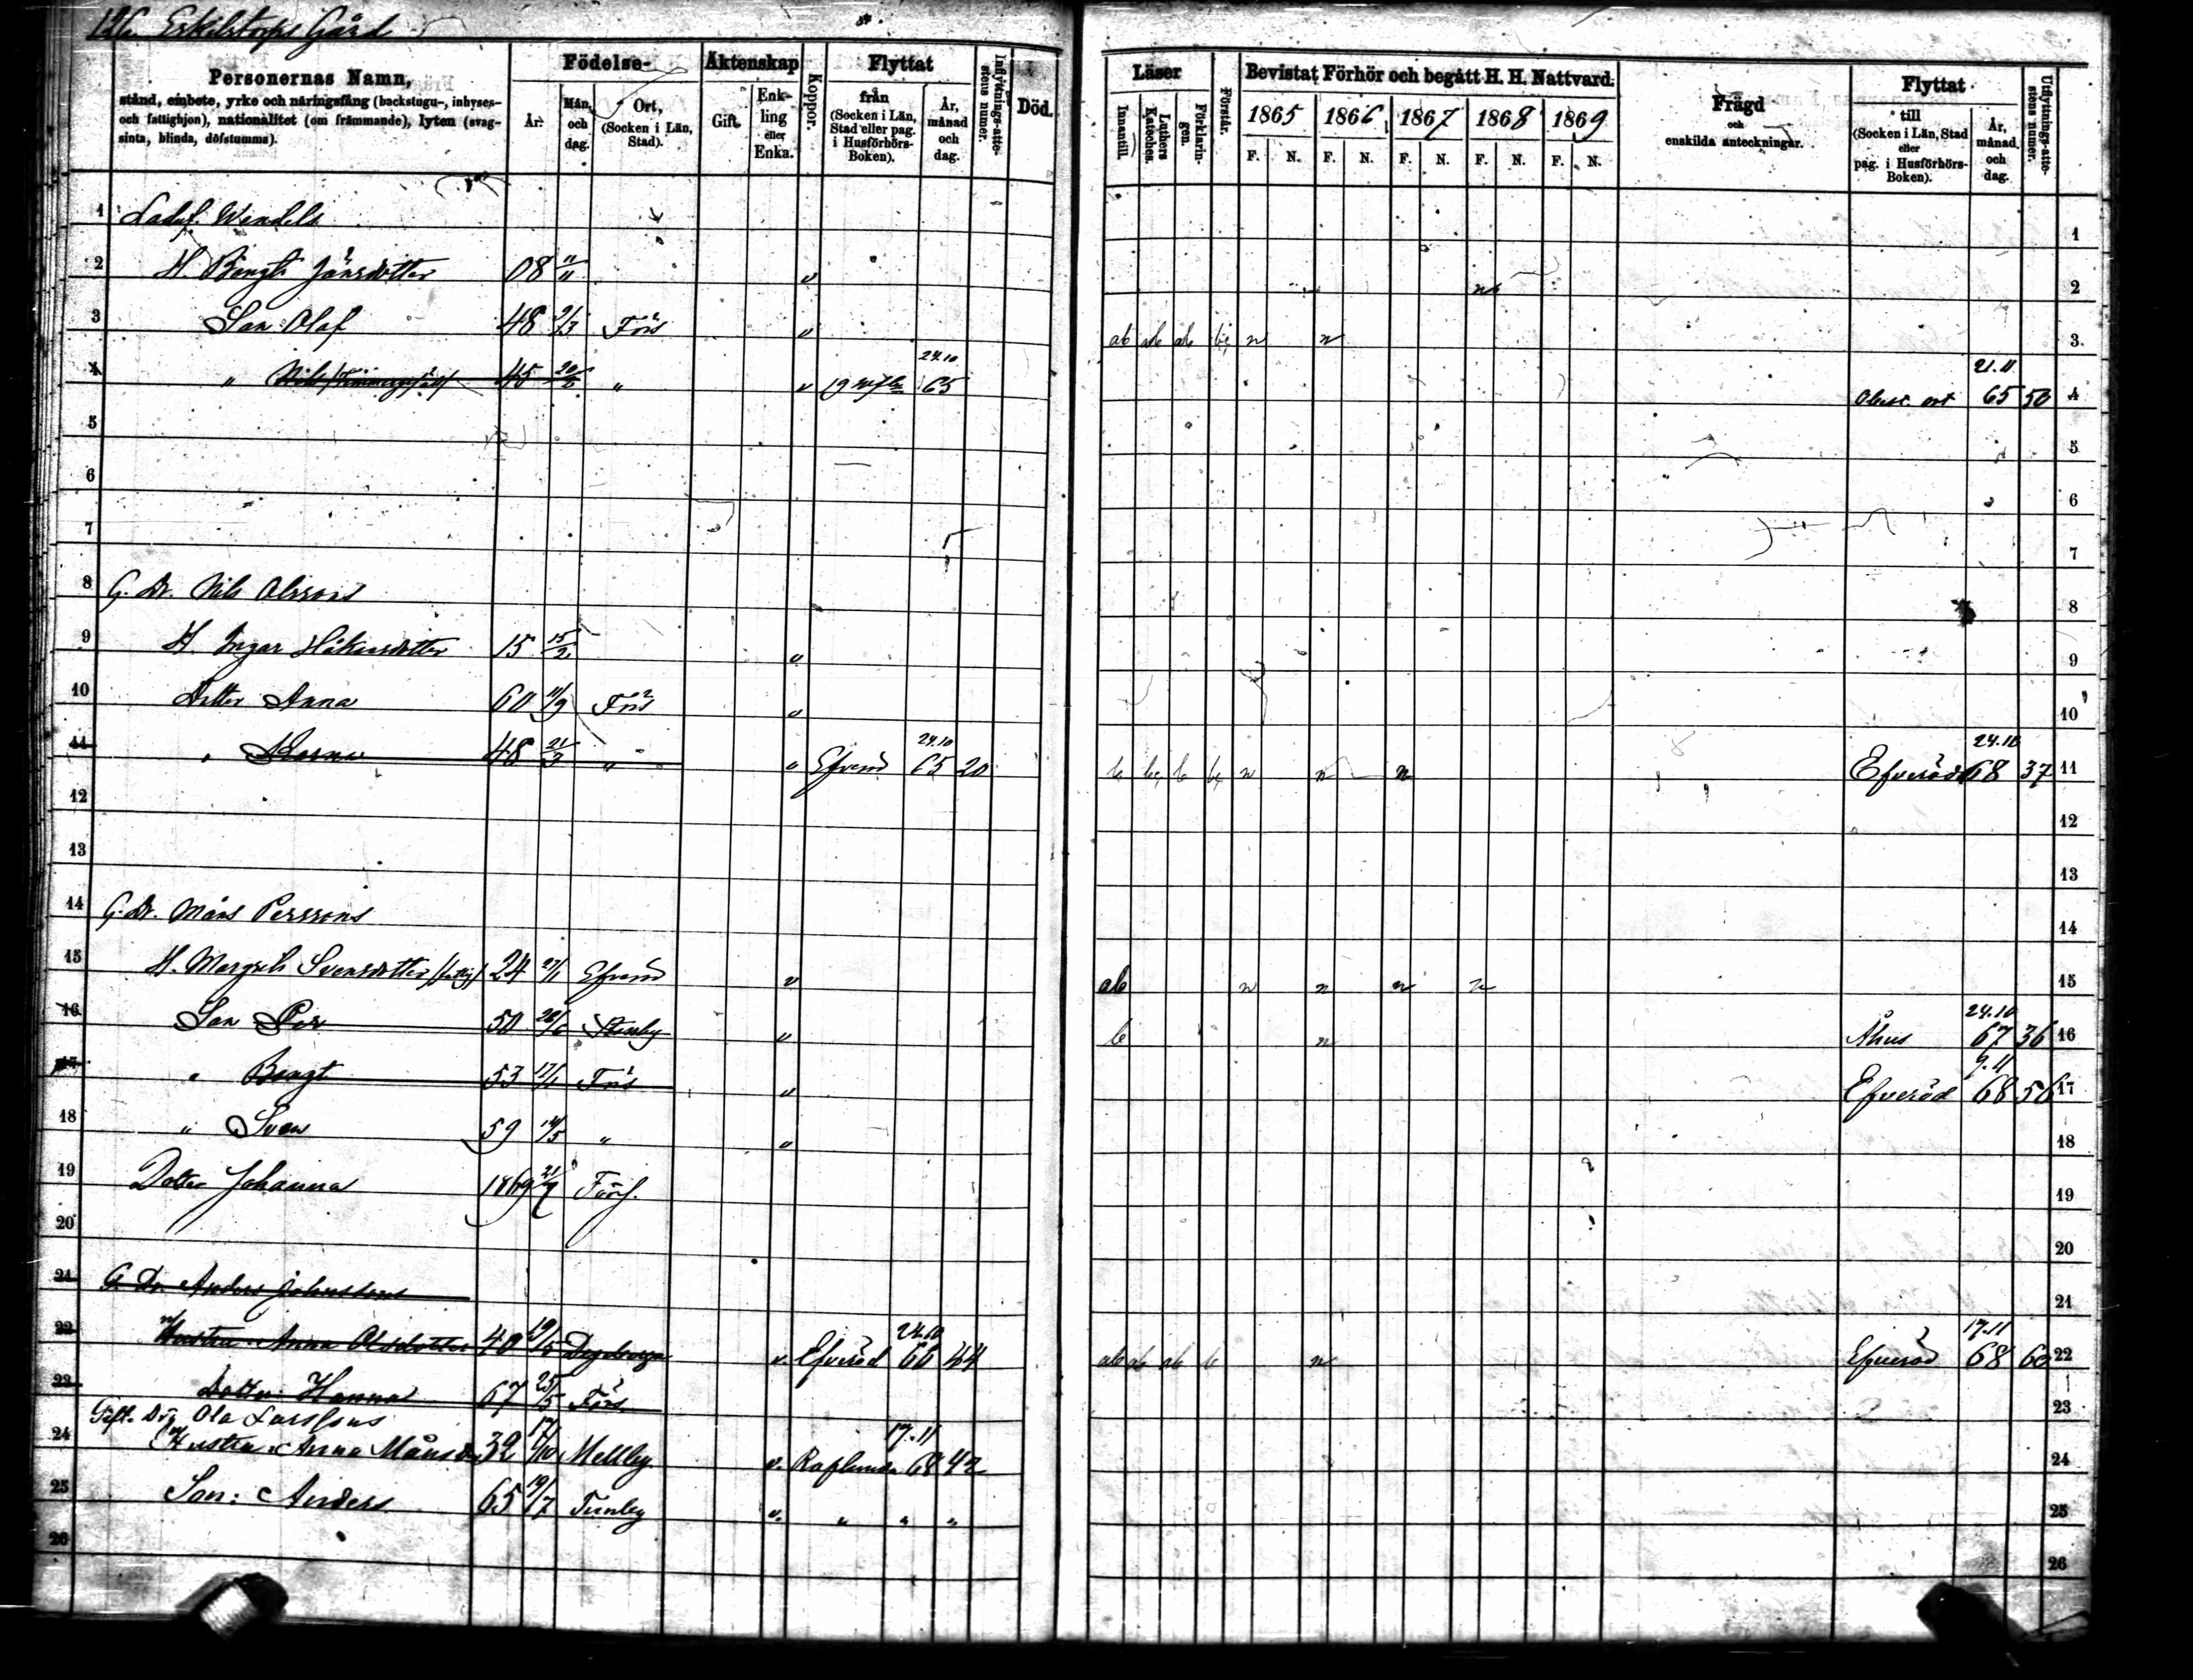 126. Eskilstorps Gård
Personernas Namn,
stånd, embete, yrke och näringsfång (backstugu-, inhyses-
och fattighjon), nationalitet (om främmande), lyten (svag-
sinta, blinda, döfstumma).
Födelse-
År.
Mån. och dag.
Ort, (Socken i Län, Stad).
Äktenskap
Gift.
Enk-ling eller Enka.
Koppor.
Flyttat
från (Socken i Län, Stad eller pag. i Husförhörs-Boken).
År, månad och dag.
Inflyttnings-atte-stens numer.
Död.
Läser
Innantill.
Luthers Kateches.
Förklarin-gen.
Förstår.
Bevistat Förhör och begått H. H. Nattvard.
1865 1866 1867 1868 1869
F. N. F. N. F. N. F. N. F. N.
Frägd
och
enskilda anteckningar.
Flyttat
till (Socken i Län, Stad eller pag. i Husförhörs-Boken).
År, månad, och dag.
Utflyttnings-atte-stens numer.
1 Wendels 1
2 H. Bengta Jönsdotter 08 11/11 v n 2
3 Son Olof 48 Förs v ab ab ab b n n 3
4 " Nils 45 " v 19 24.10 65 Obest. ort 21.11 65 50 4
5 5
6 6
7 7
8 G. Dr. Nils Olssons 8
9 H. Ingar Håkansdotter 15 15/2 v 9
10 Dotter Anna 60 11/9 Förs v 10
11 " Karna 48 21/3 " v Efveröd 24.10 65 20 b b b b n n n Efveröd 24.10 68 37 11
12 12
13 13
14 G. Dr. Måns Perssons 14
15 H. Margreta Svensdotter 24 27/1 Efveröd v ab n n n n 15
16 Son Per 50 28/6 v b n Åhus 24.10 67 36 16
17 " Bengt 53 17/1 Förs v Efveröd 9.11 68 56 17
18 " Sven 59 14/5 " v 18
19 Dotter Johanna 1869 21/7 Förs. 19
20 20
21 G. Dr. Anders Johnssons 21
22 Hustru Anna Olsdotter 40 19/5 Degeberga v. Efveröd 24.10 66 44 ab ab ab b n Efveröd 17.11 68 60 22
23 Dotter Hanna 67 25/5 Förs 23
Gift. Drg Ola Larssons
24 Hustru Anna Månsd. 32 17/10 Mellby v. Raflunda 17.11 68 42 24
25 Son: Anders 65 19/7 v. " " " 25
26 26